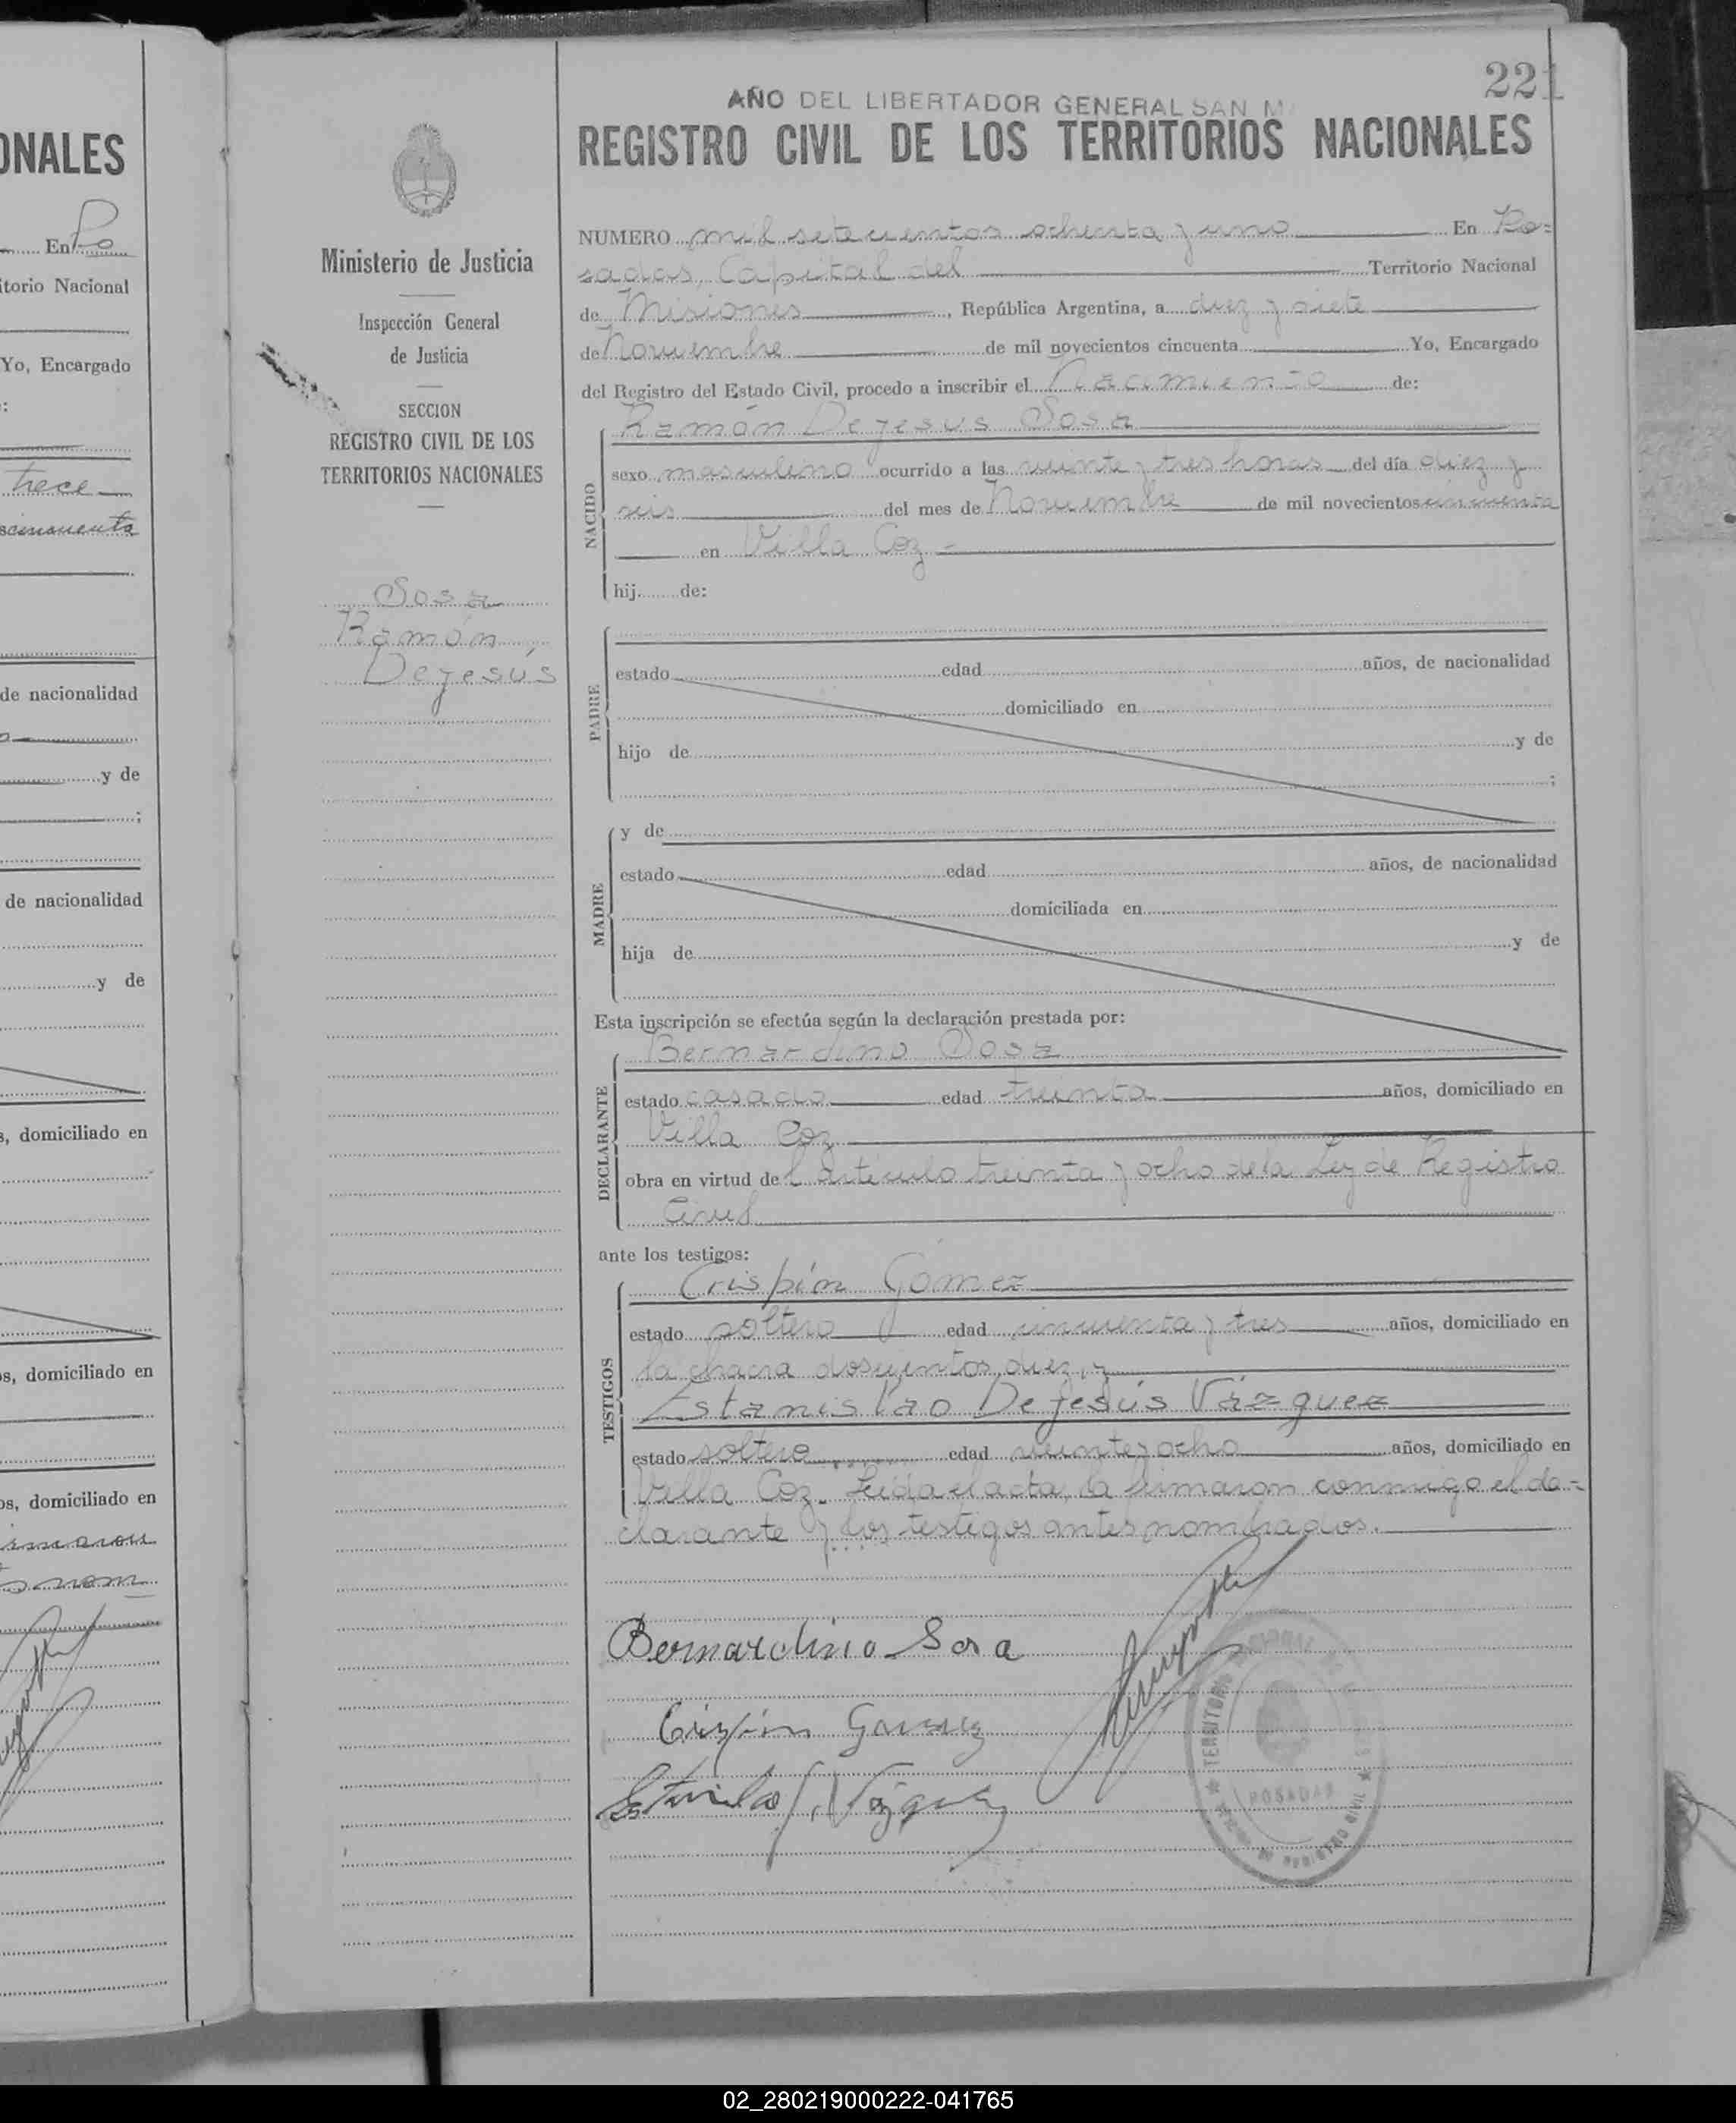 ONALES
En Po
itorio Nacional
Yo, Encargado
:
trece
s cincuenta
de nacionalidad
y de
;
de nacionalidad
y de
s, domiciliado en
os, domiciliado en
os, domiciliado en
firmaron
nom
221
AÑO DEL LIBERTADOR GENERAL SAN M
REGISTRO CIVIL DE LOS TERRITORIOS NACIONALES
Ministerio de Justicia
Inspección General
de Justicia
SECCION
REGISTRO CIVIL DE LOS
TERRITORIOS NACIONALES
Sosa
Ramón
Dejesús
NUMERO mil setecientos ochenta y uno En Po=
sadas, Capital del Territorio Nacional
de Misiones, República Argentina, a diez y siete
de Noviembre de mil novecientos cincuenta Yo, Encargado
del Registro del Estado Civil, procedo a inscribir el Nacimiento de:
NACIDO
Ramón Dejesus Sosa
sexo masculino ocurrido a las veinte y tres horas del día diez y
seis del mes de Noviembre de mil novecientos cincuenta
en Villa Coz -
hij de:
PADRE
estado edad años, de nacionalidad
domiciliado en
hijo de y de
;
MADRE
y de
estado edad años, de nacionalidad
domiciliada en
hija de y de
Esta inscripción se efectúa según la declaración prestada por:
DECLARANTE
Bernardino Sosa
estado casado edad treinta años, domiciliado en
Villa Coz
obra en virtud del artículo treinta y ocho de la Ley de Registro
Civil
ante los testigos:
TESTIGOS
Crispín Gómez
estado soltero edad cincuenta y tres años, domiciliado en
la chacra doscientos diez, y
Estanislao De Jesús Vázquez
estado soltero edad veinte y ocho años, domiciliado en
Villa Coz. Leida el acta, la firmaron conmigo el de=
clarante y los testigos antes nombrados.
Bernardino Sosa
Crispín Gomez
Estanislao J. Vázquez
TERRITORIO NACIONAL
POSADAS
REGISTRO CIVIL
02_280219000222-041765